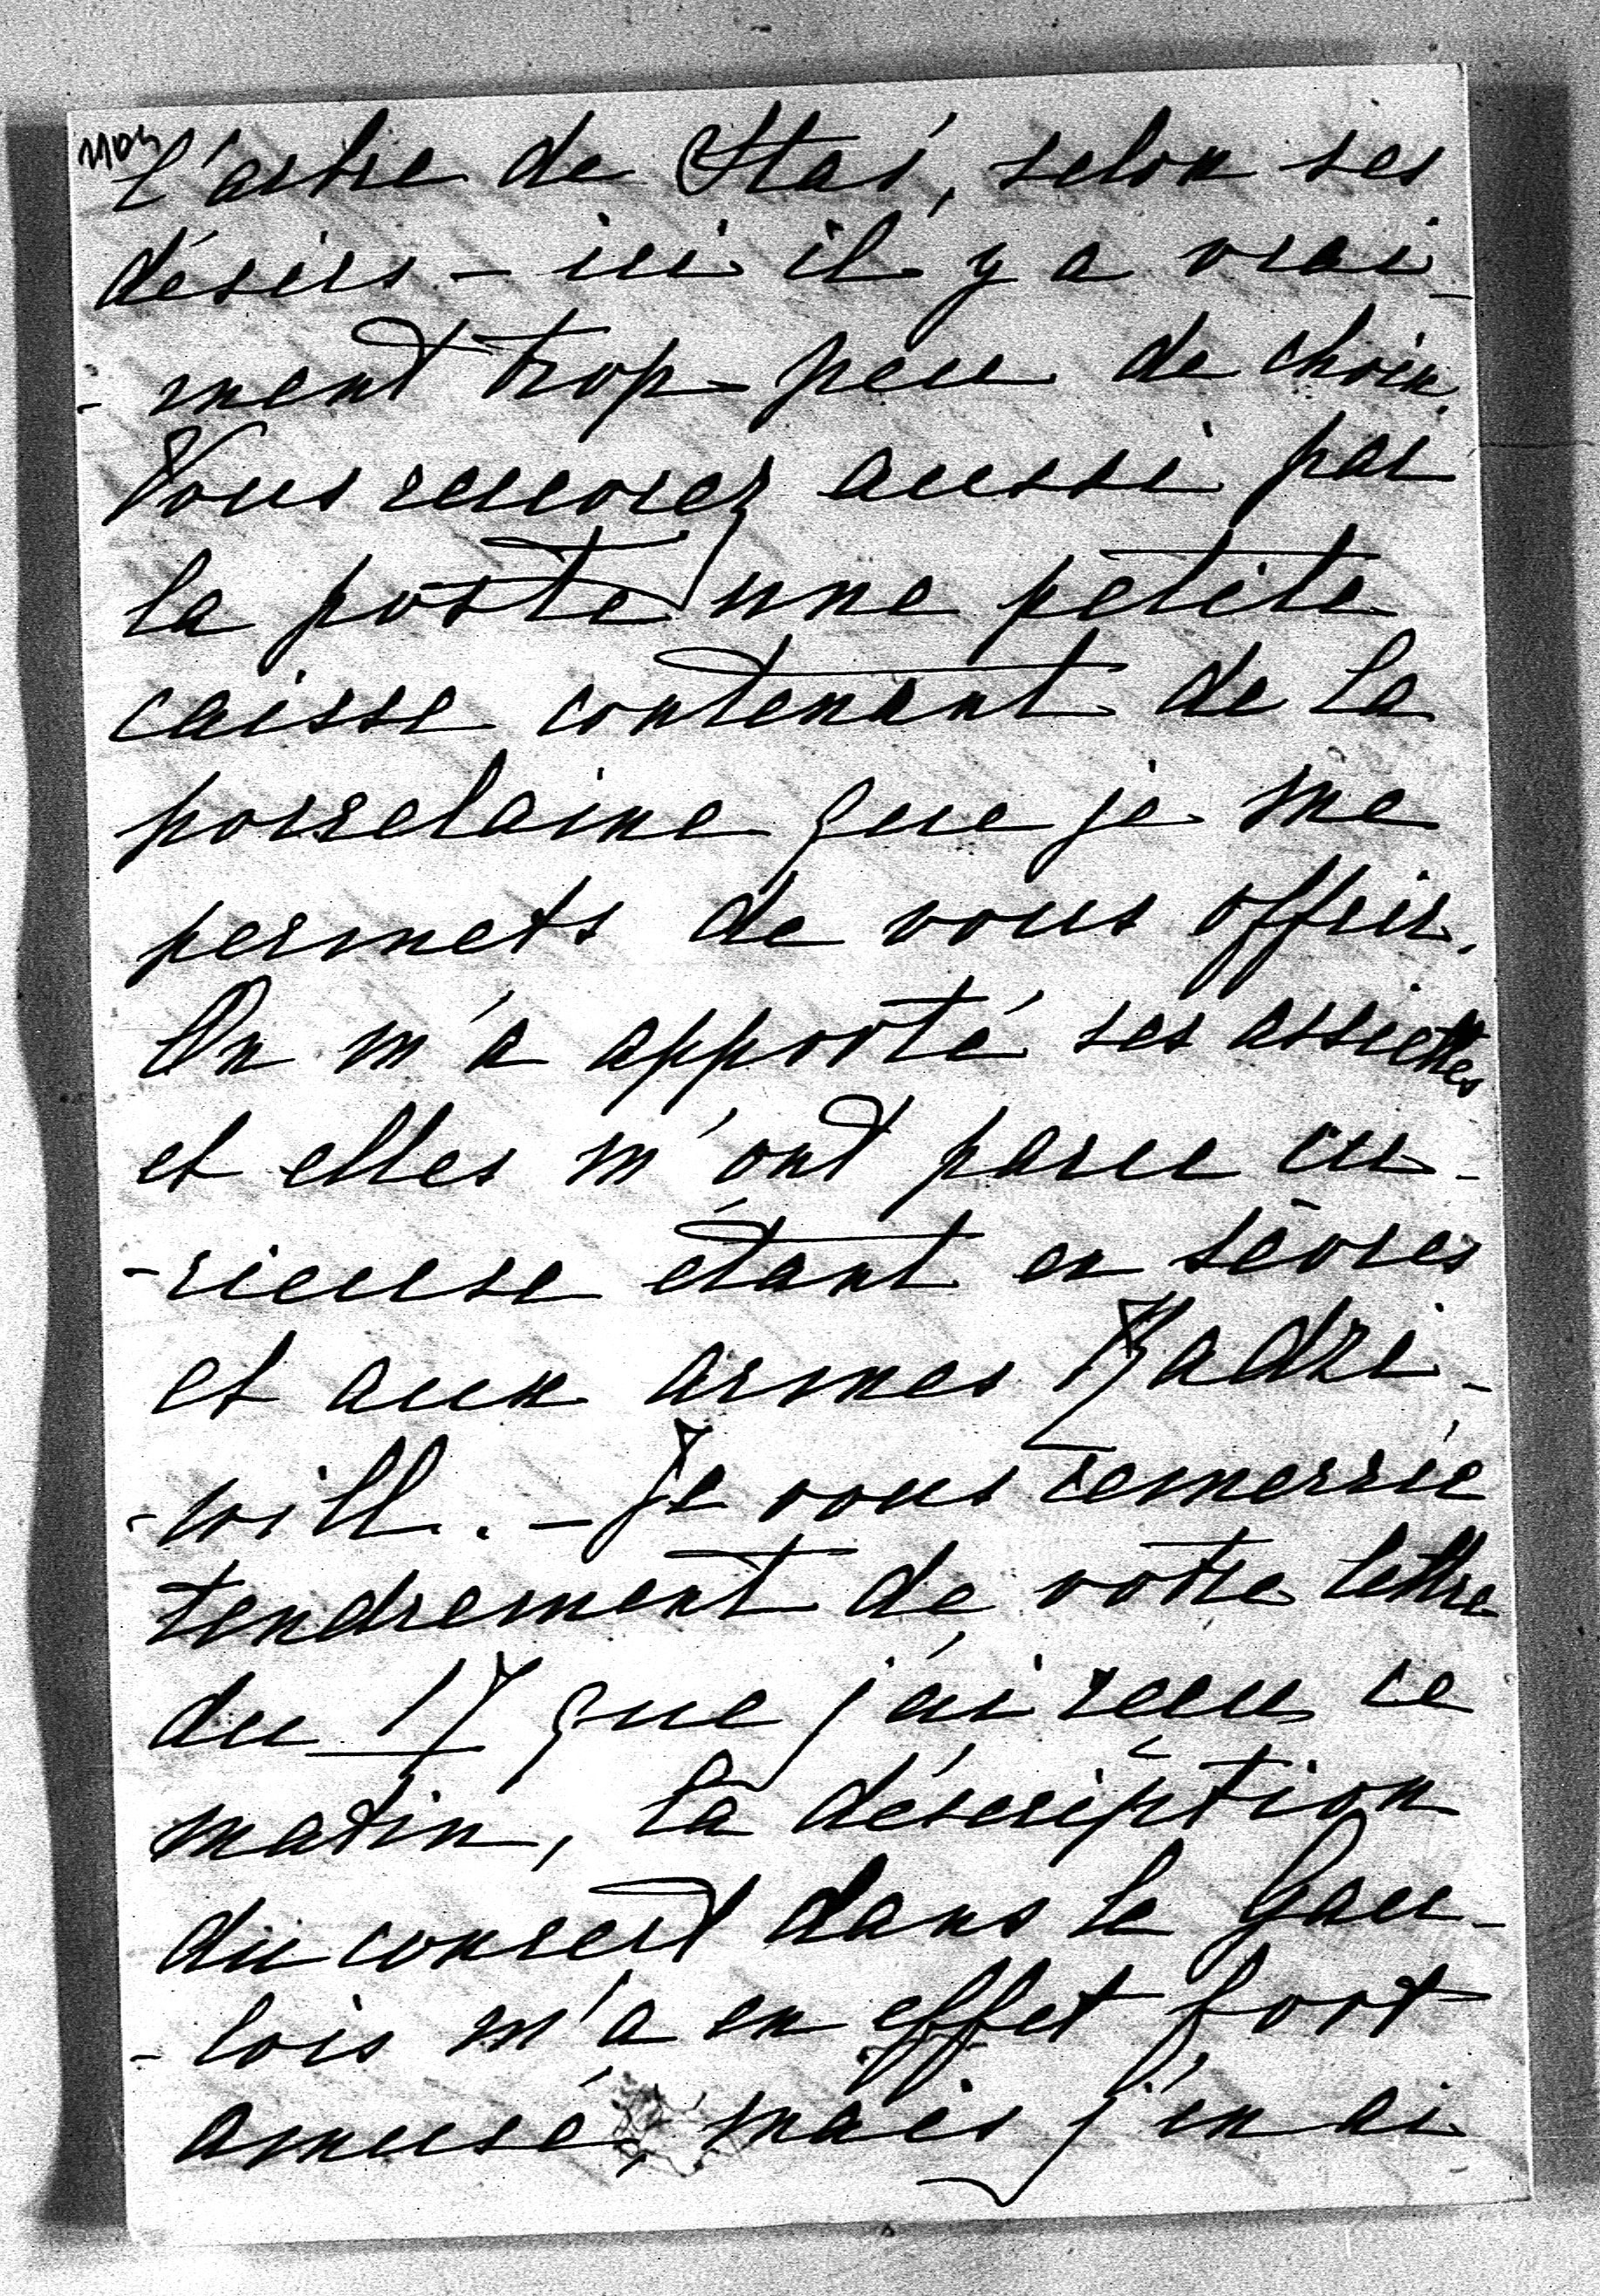 l'arbre de Staś, selon ses
désirs. – ici il y a vrai-
- ment trop peu de choix.
Vous recevrez aussi par
la poste une petite
caisse contenant de la
porcelaine que je me
permets de vous offrir.
On m'a apporté ses assiettes
et elles m'ont parue cu-
- rieuse étant en sèvres
et aux armes Radzi-
- will. – Je vous remercie
tendrement de votre lettre
du 17 que j'ai reçu ce
matin, la déscription
du concert dans le Gau-
- lois m'a en effet fort
amusé, mais j'en ai